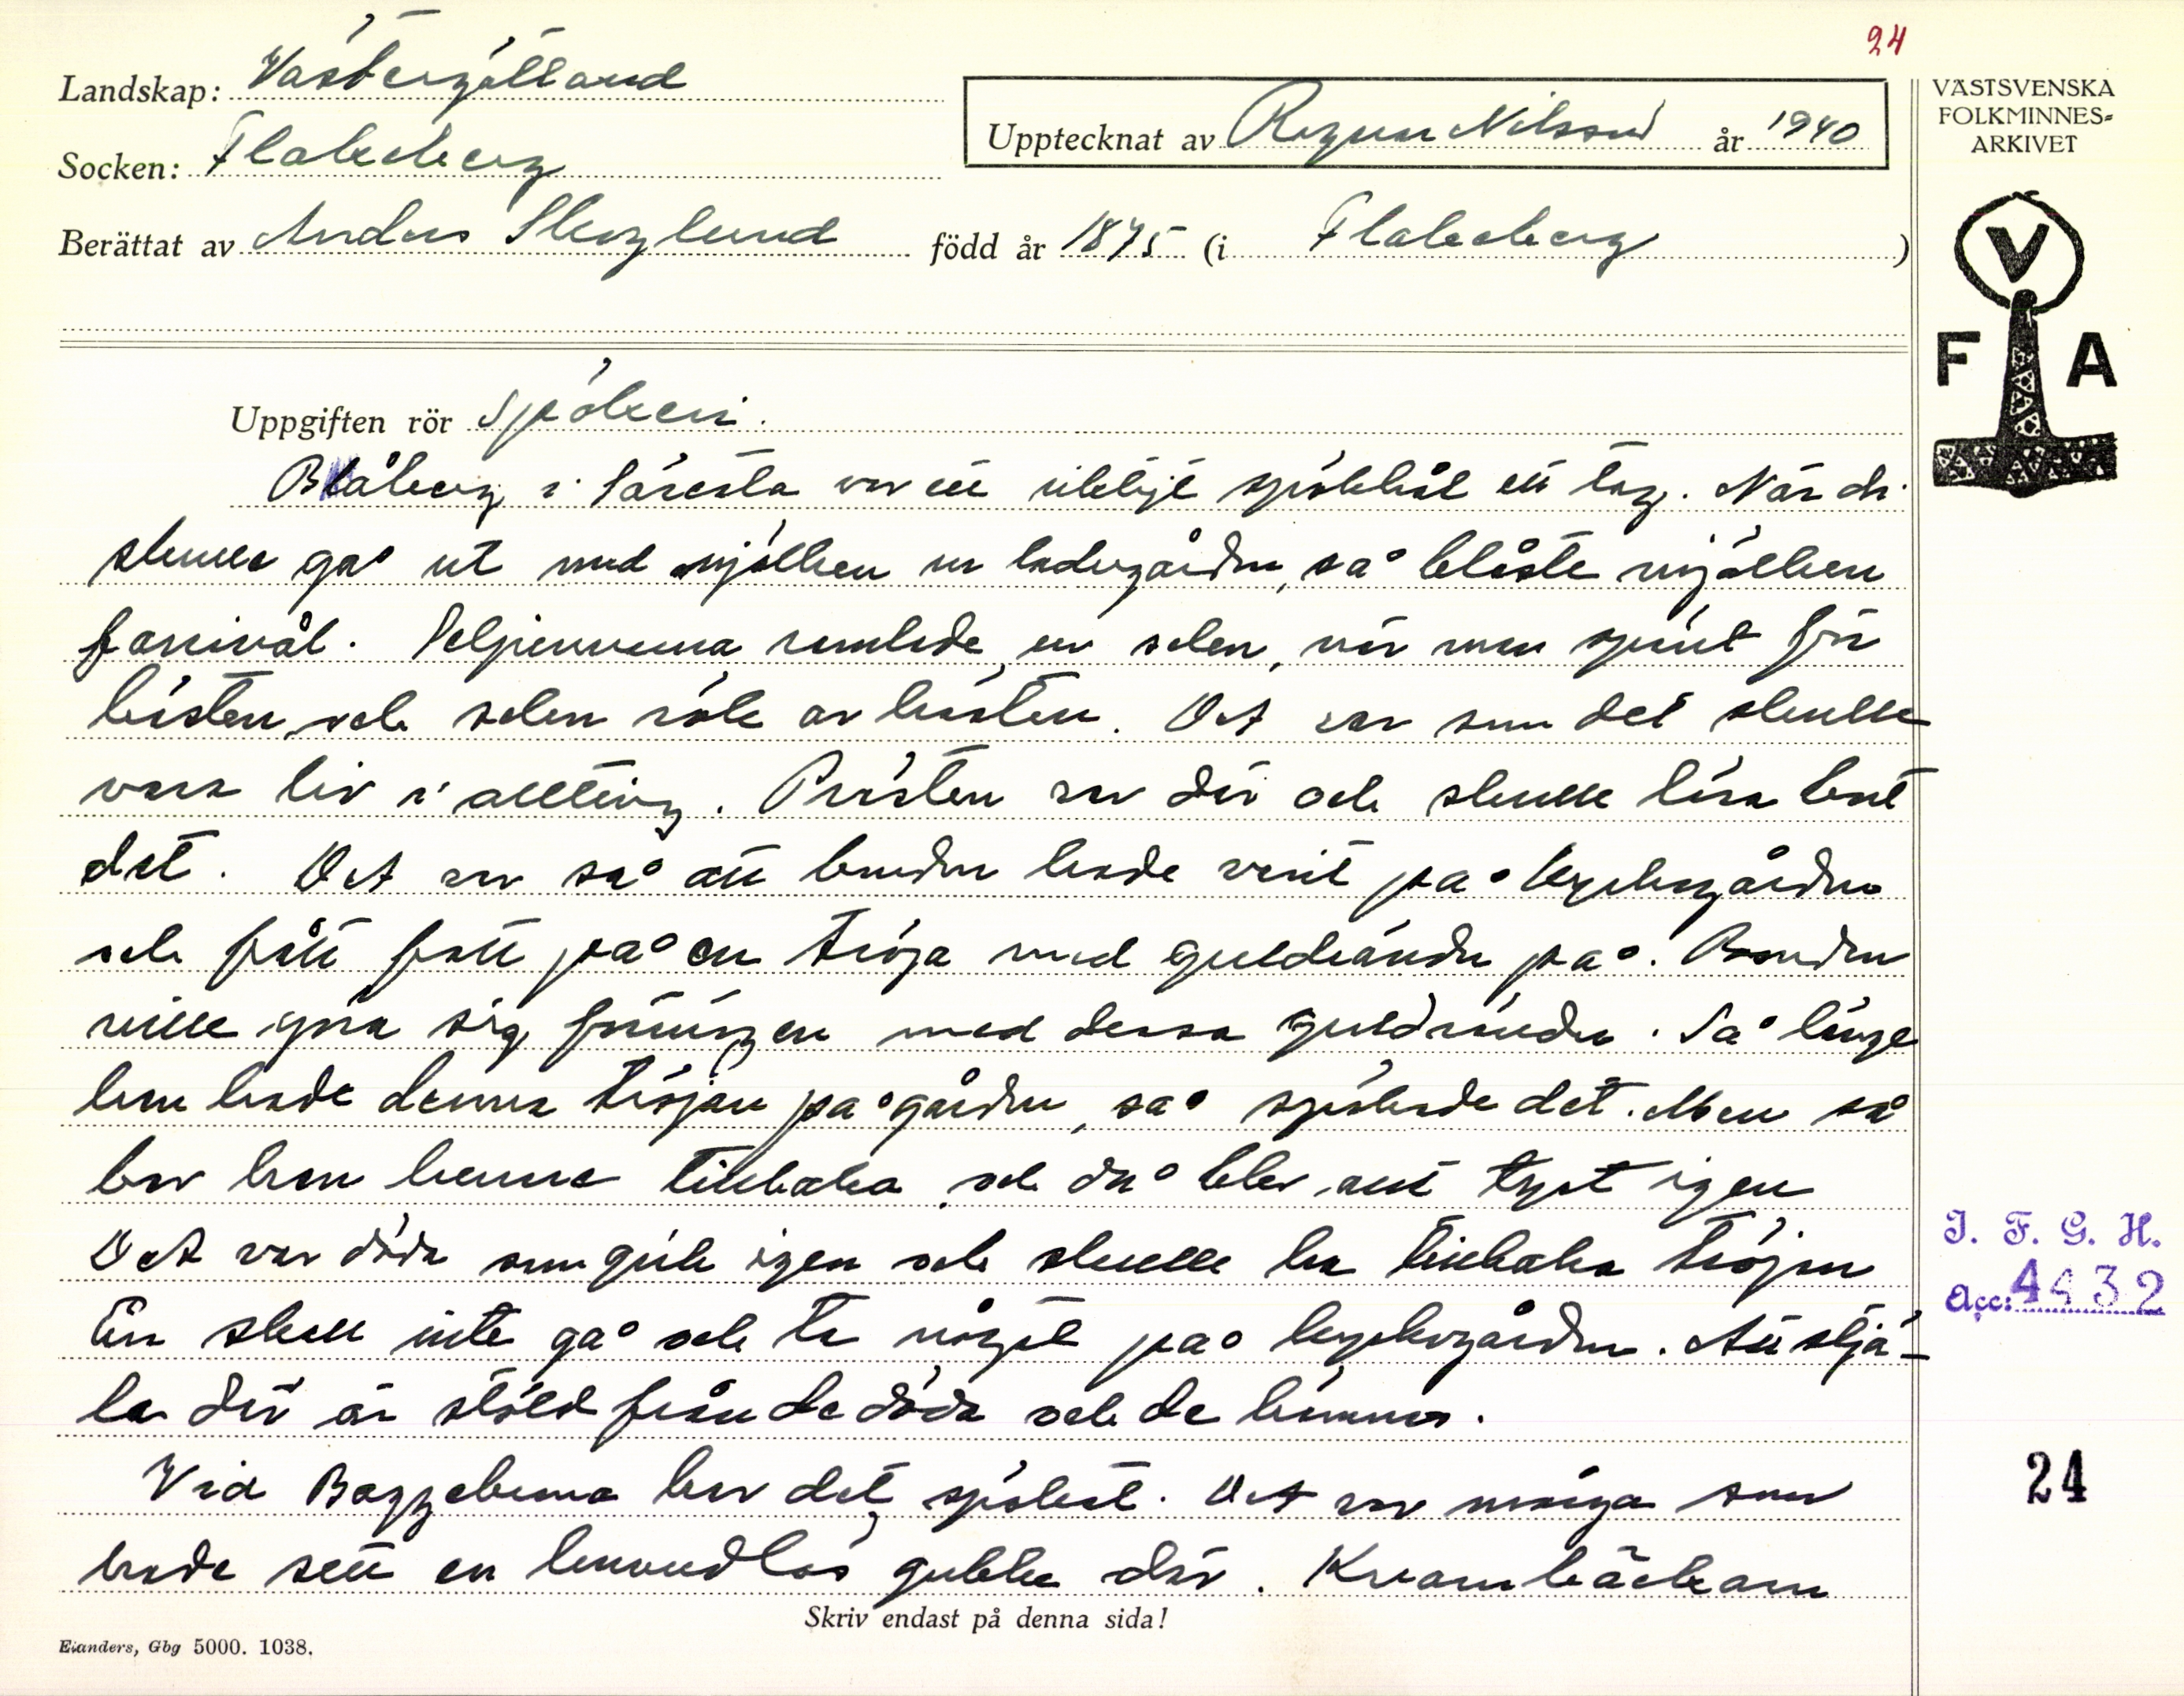 24
Landskap: Västergötland
Socken: Flakeberg
Upptecknat av Ragnar Nilsson år 1940
VÄSTSVENSKA
FOLKMINNES=
ARKIVET
Berättat av Anders Skoglund född år 1875 (i Flakeberg)
V
F A
Uppgiften rör Spökeri.
Blåberg i Säresta var ett spökhål ett tag. När di
skulle gå ut med mjölken ur ladugården, så blåste mjölken
ramlade ur selen, när man spänt för
hästen och selen rök av hästen. Det var som det skulle
vara liv i allting. Prästen var där och skulle läsa bort
det. Det var så att bonden hade varit på kyrkogården
och fått fatt på en tröja med guldränder på. Bonden
ville göra sig förmögen med dessa guldränder. Så länge
han hade denna tröjan på gården, så spökade det. Men så
bar han henne tillbaka och då blev allt tyst igen
Det var döda som gick igen och skulle ha tillbaka tröjan
En skall inte gå och ta något på kyrkogården. Att stjä-
la där är stöld från de döda och de hämnas.
Vid Baggebruna har det spökat. Det var många som
hade sett en huvudlös gubbe där. Kvarnbäcken
Skriv endast på denna sida!
Elanders, Gbg 5000. 1038.
I. F. G. H.
Acc: 4432
24